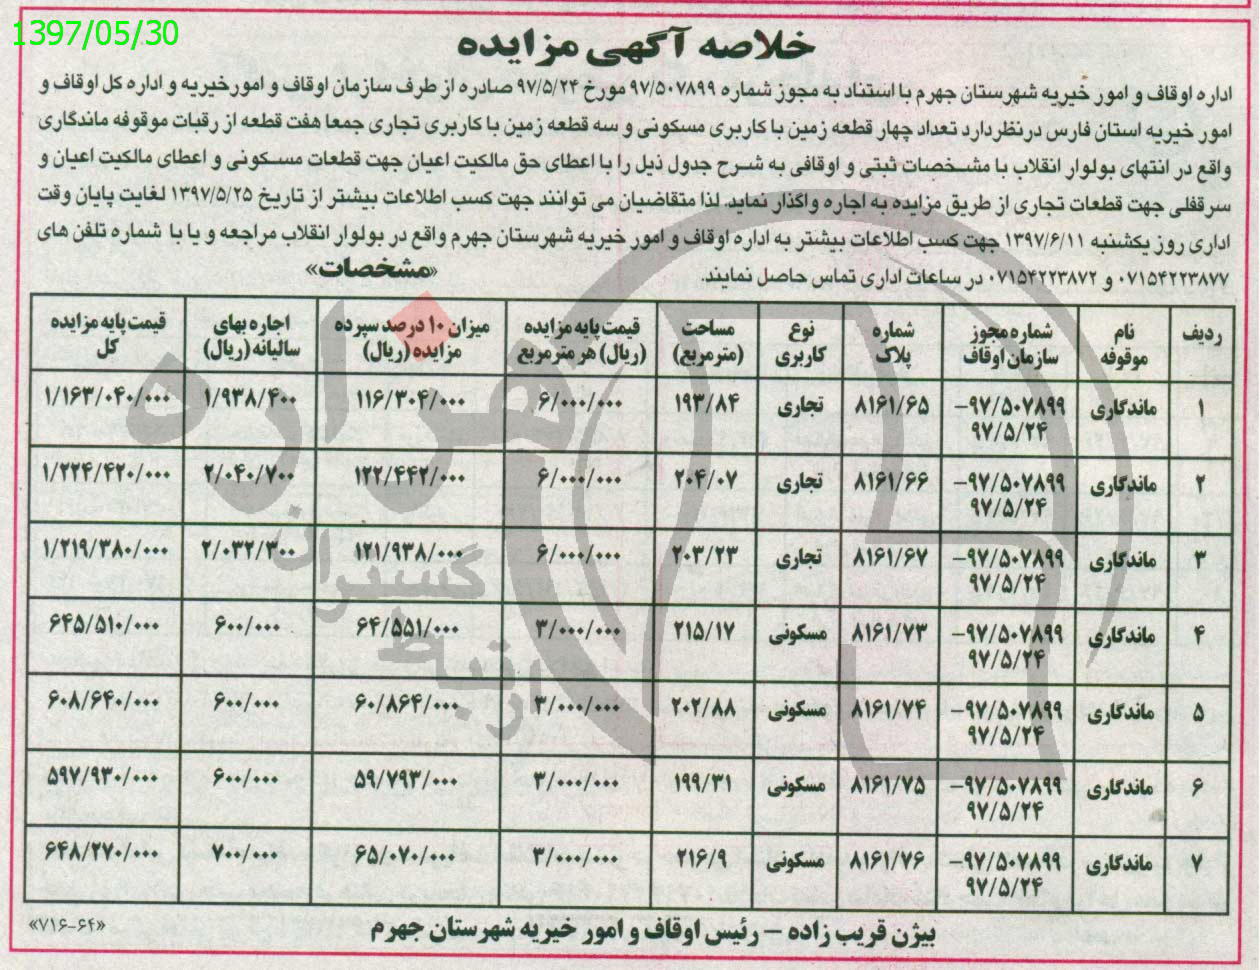 1397/05/30
خلاصه آگهی مزایده
اداره اوقاف و امور خیریه شهرستان جهرم با استناد به مجوز شماره ۹۷/۵۰۷۸۹۹ مورخ ۹۷/۵/۲۴ صادره از طرف سازمان اوقاف و امورخیریه و اداره کل اوقاف و
امور خیریه استان فارس درنظردارد تعداد چهار قطعه زمین با کاربری مسکونی و سه قطعه زمین با کاربری تجاری جمعا هفت قطعه از رقبات موقوفه ماندگاری
واقع در انتهای بولوار انقلاب با مشخصات ثبتی و اوقافی به شرح جدول ذیل را با اعطای حق مالکیت اعیان جهت قطعات مسکونی و اعطای مالکیت اعیان و
سرقفلی جهت قطعات تجاری از طریق مزایده به اجاره واگذار نماید. لذا متقاضیان می توانند جهت کسب اطلاعات بیشتر از تاریخ ۱۳۹۷/۵/۲۵ لغایت پایان وقت
اداری روز یکشنبه ۱۳۹۷/۶/۱۱ جهت کسب اطلاعات بیشتر به اداره اوقاف و امور خیریه شهرستان جهرم واقع در بولوار انقلاب مراجعه و یا با شماره تلفن های
۰۷۱۵۴۲۲۳۸۷۷ و ۰۷۱۵۴۲۲۳۸۷۲ در ساعات اداری تماس حاصل نمایند. «مشخصات»
ردیف نام موقوفه شماره مجوز سازمان اوقاف شماره پلاک نوع کاربری مساحت (مترمربع) قیمت پایه مزایده (ریال) هر مترمربع میزان ۱۰ درصد سپرده مزایده (ریال) اجاره بهای سالیانه (ریال) قیمت پایه مزایده کل
۱ ماندگاری ۹۷/۵۰۷۸۹۹– ۹۷/۵/۲۴ ۸۱۶۱/۶۵ تجاری ۱۹۳/۸۴ ۶/۰۰۰/۰۰۰ ۱۱۶/۳۰۴/۰۰۰ ۱/۹۳۸/۴۰۰ ۱/۱۶۳/۰۴۰/۰۰۰
۲ ماندگاری ۹۷/۵۰۷۸۹۹– ۹۷/۵/۲۴ ۸۱۶۱/۶۶ تجاری ۲۰۴/۰۷ ۶/۰۰۰/۰۰۰ ۱۲۲/۴۴۲/۰۰۰ ۲/۰۴۰/۷۰۰ ۱/۲۲۴/۴۲۰/۰۰۰
۳ ماندگاری ۹۷/۵۰۷۸۹۹– ۹۷/۵/۲۴ ۸۱۶۱/۶۷ تجاری ۲۰۳/۲۳ ۶/۰۰۰/۰۰۰ ۱۲۱/۹۳۸/۰۰۰ ۲/۰۳۲/۳۰۰ ۱/۲۱۹/۳۸۰/۰۰۰
۴ ماندگاری ۹۷/۵۰۷۸۹۹– ۹۷/۵/۲۴ ۸۱۶۱/۷۳ مسکونی ۲۱۵/۱۷ ۳/۰۰۰/۰۰۰ ۶۴/۵۵۱/۰۰۰ ۶۰۰/۰۰۰ ۶۴۵/۵۱۰/۰۰۰
۵ ماندگاری ۹۷/۵۰۷۸۹۹– ۹۷/۵/۲۴ ۸۱۶۱/۷۴ مسکونی ۲۰۲/۸۸ ۳/۰۰۰/۰۰۰ ۶۰/۸۶۴/۰۰۰ ۶۰۰/۰۰۰ ۶۰۸/۶۴۰/۰۰۰
۶ ماندگاری ۹۷/۵۰۷۸۹۹– ۹۷/۵/۲۴ ۸۱۶۱/۷۵ مسکونی ۱۹۹/۳۱ ۳/۰۰۰/۰۰۰ ۵۹/۷۹۳/۰۰۰ ۶۰۰/۰۰۰ ۵۹۷/۹۳۰/۰۰۰
۷ ماندگاری ۹۷/۵۰۷۸۹۹– ۹۷/۵/۲۴ ۸۱۶۱/۷۶ مسکونی ۲۱۶/۹ ۳/۰۰۰/۰۰۰ ۶۵/۰۷۰/۰۰۰ ۷۰۰/۰۰۰ ۶۴۸/۲۷۰/۰۰۰
بیژن قریب زاده – رئیس اوقاف و امور خیریه شهرستان جهرم
«۷۱۶-۶۴»
هزاره
گستران
ارتباط